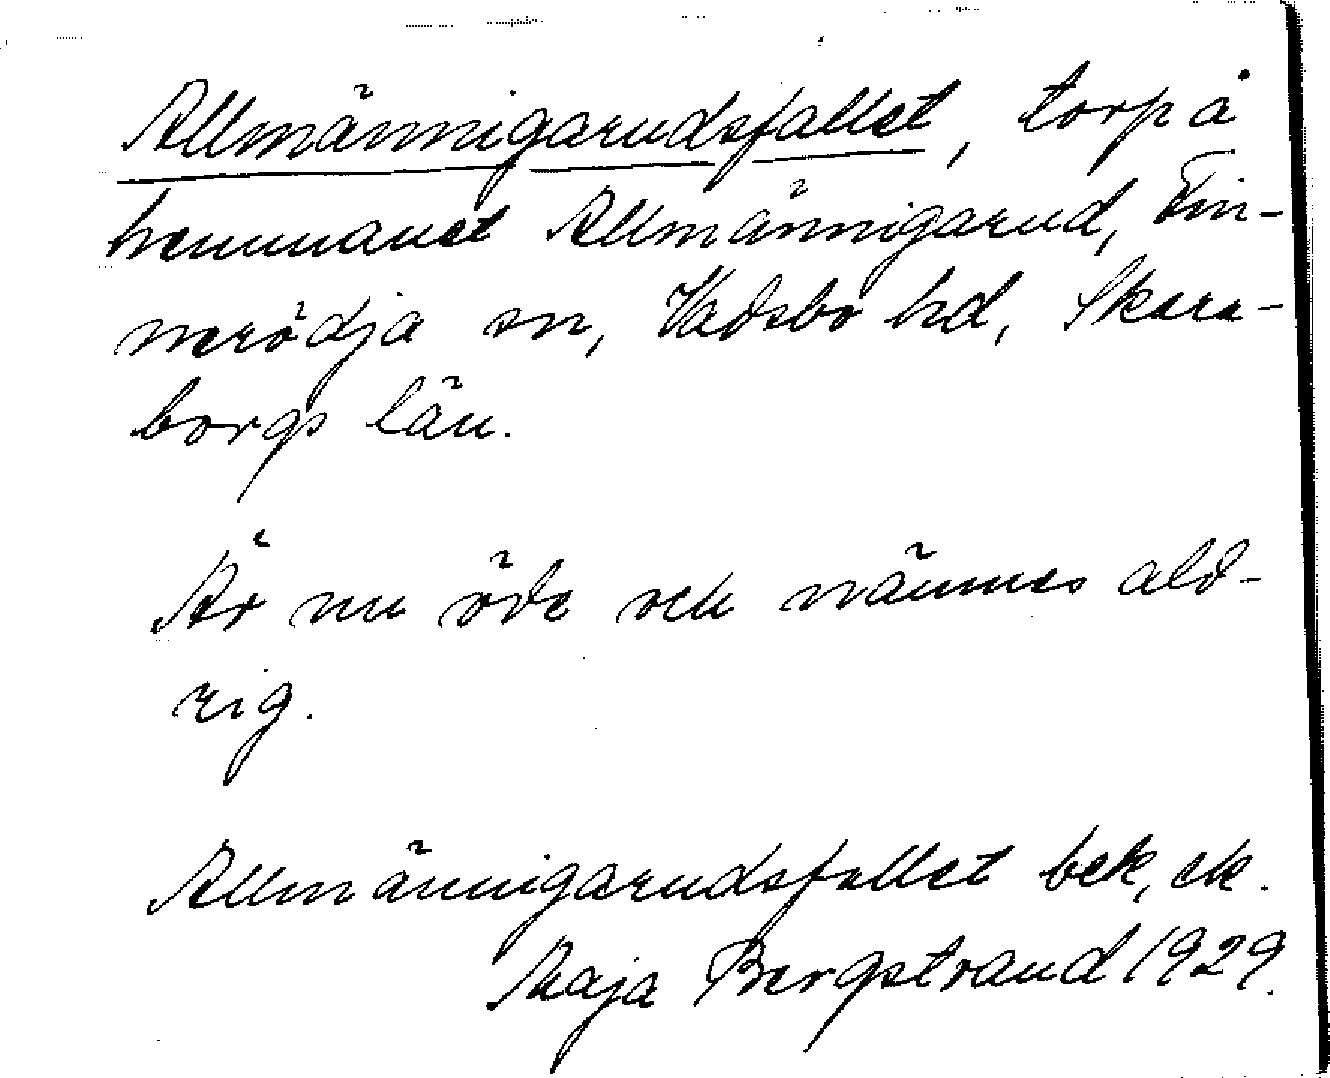 Allmännigarudsfallet, torp å
hemmanet Allmännigarud, Fin-
nerödja sn, Vadsbo hd, Skara-
borgs län.
Är nu öde och nämnes ald-
rig.
Allmännigarudsfallet bek, ek.
Maja Bergstrand 1929.